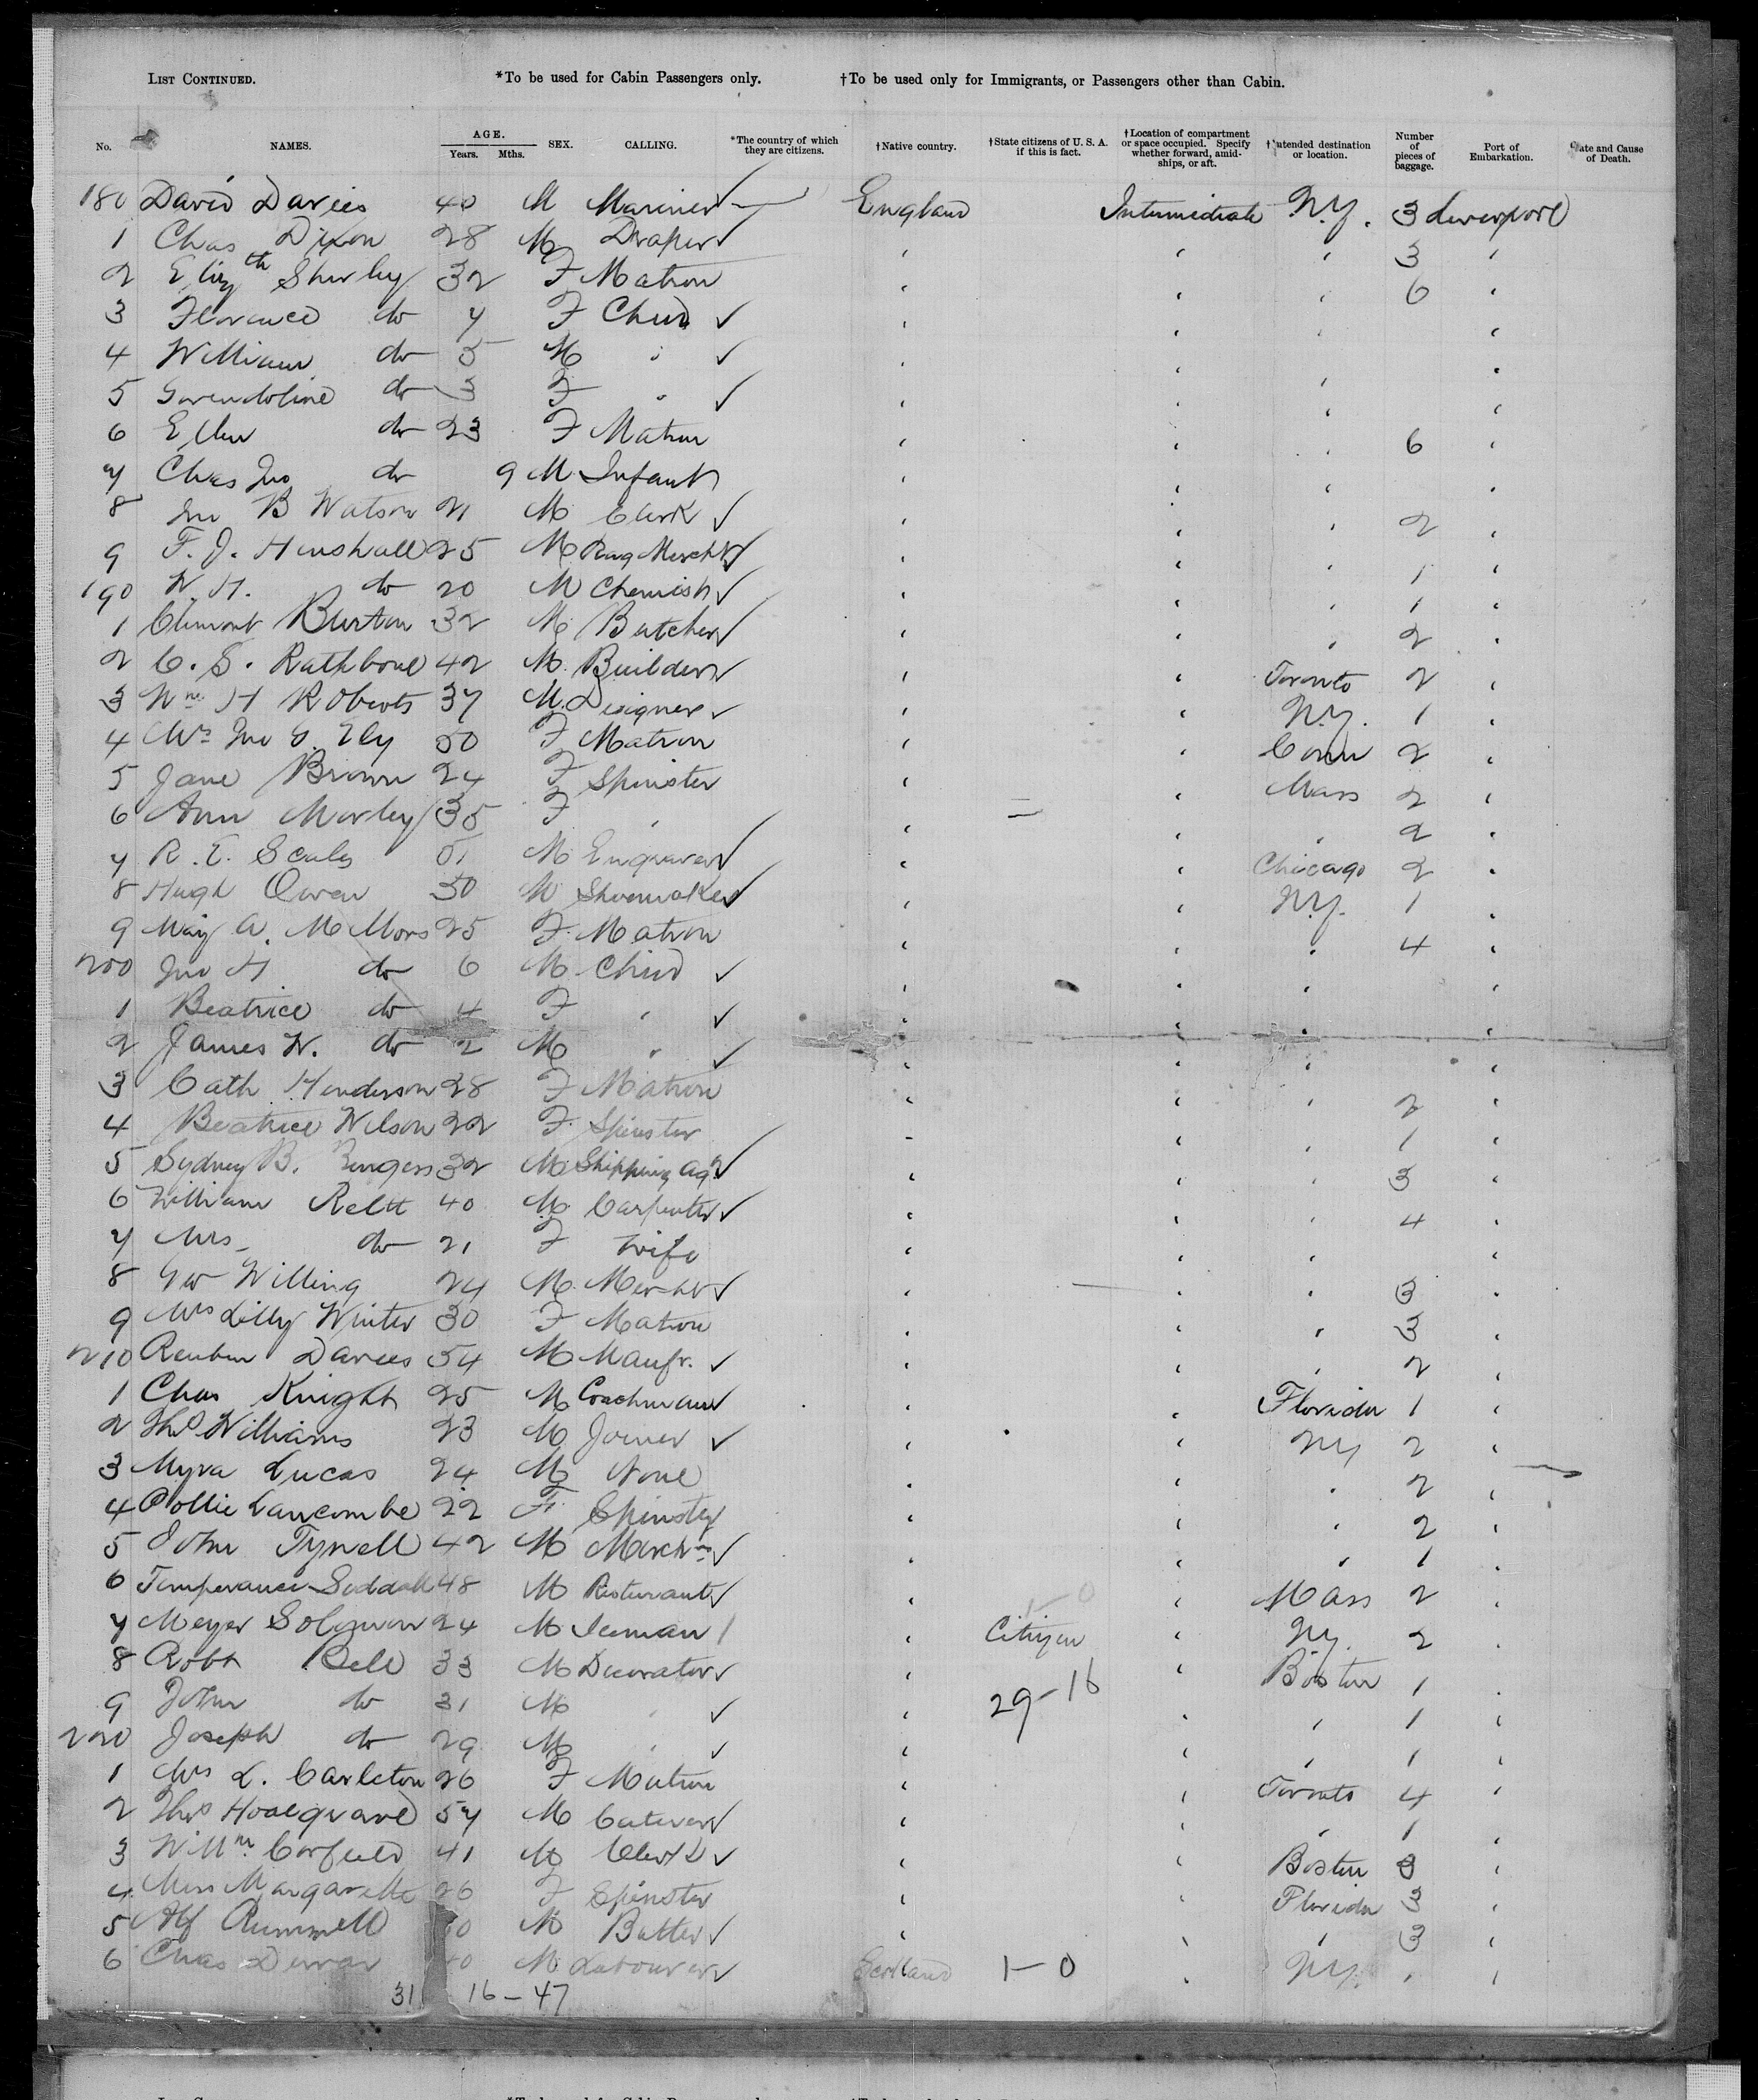 LIST CONTINUED. *To be used for Cabin Passengers only. †To be used only for Immigrants, or Passengers other than Cabin.
No. NAMES. AGE. Years. Mths. SEX. CALLING. *The country of which they are citizens. †Native country. †State citizens of U. S. A. if this is fact. †Location of compartment or space occupied. Specify whether forward, amidships, or aft. †Intended destination or location. Number of pieces of baggage. Port of Embarkation. Date and Cause of Death.
180 David Davies 40 M Mariner England Intermediate N.Y. 3 Liverpool
1 Chas Dixon 28 M Draper " " " 3 "
2 Elizth Shirley 32 F Matron " " " 6 "
3 Florence do 7 F Child " " " "
4 William do 5 M " " " " "
5 Gwendoline do 3 F " " " " "
6 Ellen do 23 F Matron " " " 6 "
7 Chas Jno do 9 M Infant " " " "
8 Jno B Watson 21 M Clerk " " " 2 "
9 F. J. Henshall 25 M Rag Mercht " " " 1 "
190 W. H. do 20 M Chemist " " " 1 "
1 Clement Burton 32 M Butcher " " " 2 "
2 C. S. Rathbone 42 M Builder " " Toronto 2 "
3 Wm H Roberts 37 M Designer " " N.Y. 1 "
4 Mrs Jno G. Ely 50 F Matron " " Conn 2 "
5 Jane Brown 24 F Spinster " " Mass 2 "
6 Ann Morley 35 F " " " " 2 "
7 R. E. Scales 51 M Engraver " " Chicago 2 "
8 Hugh Owen 50 M Shoemaker " " N.Y. 1 "
9 May A. Mellors 25 F Matron " " " 4 "
200 Jno H do 6 M Child " " " "
1 Beatrice do 4 F " " " " "
2 James W. do 2 M " " " " "
3 Cath Henderson 28 F Matron " " " 2 "
4 Beatrice Wilson 22 F Spinster " " " 1 "
5 Sydney B. 32 M Shipping Agt " " " 3 "
6 William Relst 40 M Carpenter " " " 4 "
7 Mrs do 21 F Wife " " "
8 Geo Willing 24 M Mercht " " " 3 "
9 Mrs Lilly Winter 30 F Matron " " " 3 "
210 Reuben Davies 54 M Manfr. " " " 2 "
1 Chas Knight 25 M Coachman " " Florida 1 "
2 Thos Williams 23 M Joiner " " NY 2 "
3 Myra Lucas 24 M None " " " 2 "
4 Pollie Lancombe 22 F Spinster " " " 2 "
5 John Tyrrell 42 M Mercht " " " 1 "
6 Temperance Siddall 48 M Restaurant " 1-0 " Mass 2 "
7 Meyer Solomon 24 M Iceman " Citizen " N.Y. 2 "
8 Robt Bell 33 M Decorator " " Boston 1 "
9 John do 31 M " " 29-16 " " 1 "
220 Joseph do 29 M " " " " 1 "
1 Mrs L. Carleton 26 F Matron " " Toronto 4 "
2 Thos Hoalgrave 57 M Caterer " " " 1 "
3 Willm Corfield 41 M Clerk " " Boston 3 "
4 Miss Margarette 26 F Spinster " " Florida 3 "
5 Alf Rummell M Butler " " " 3 "
6 Chas M Labourer Scotland 1-0 " N.Y. " "
31 16-47